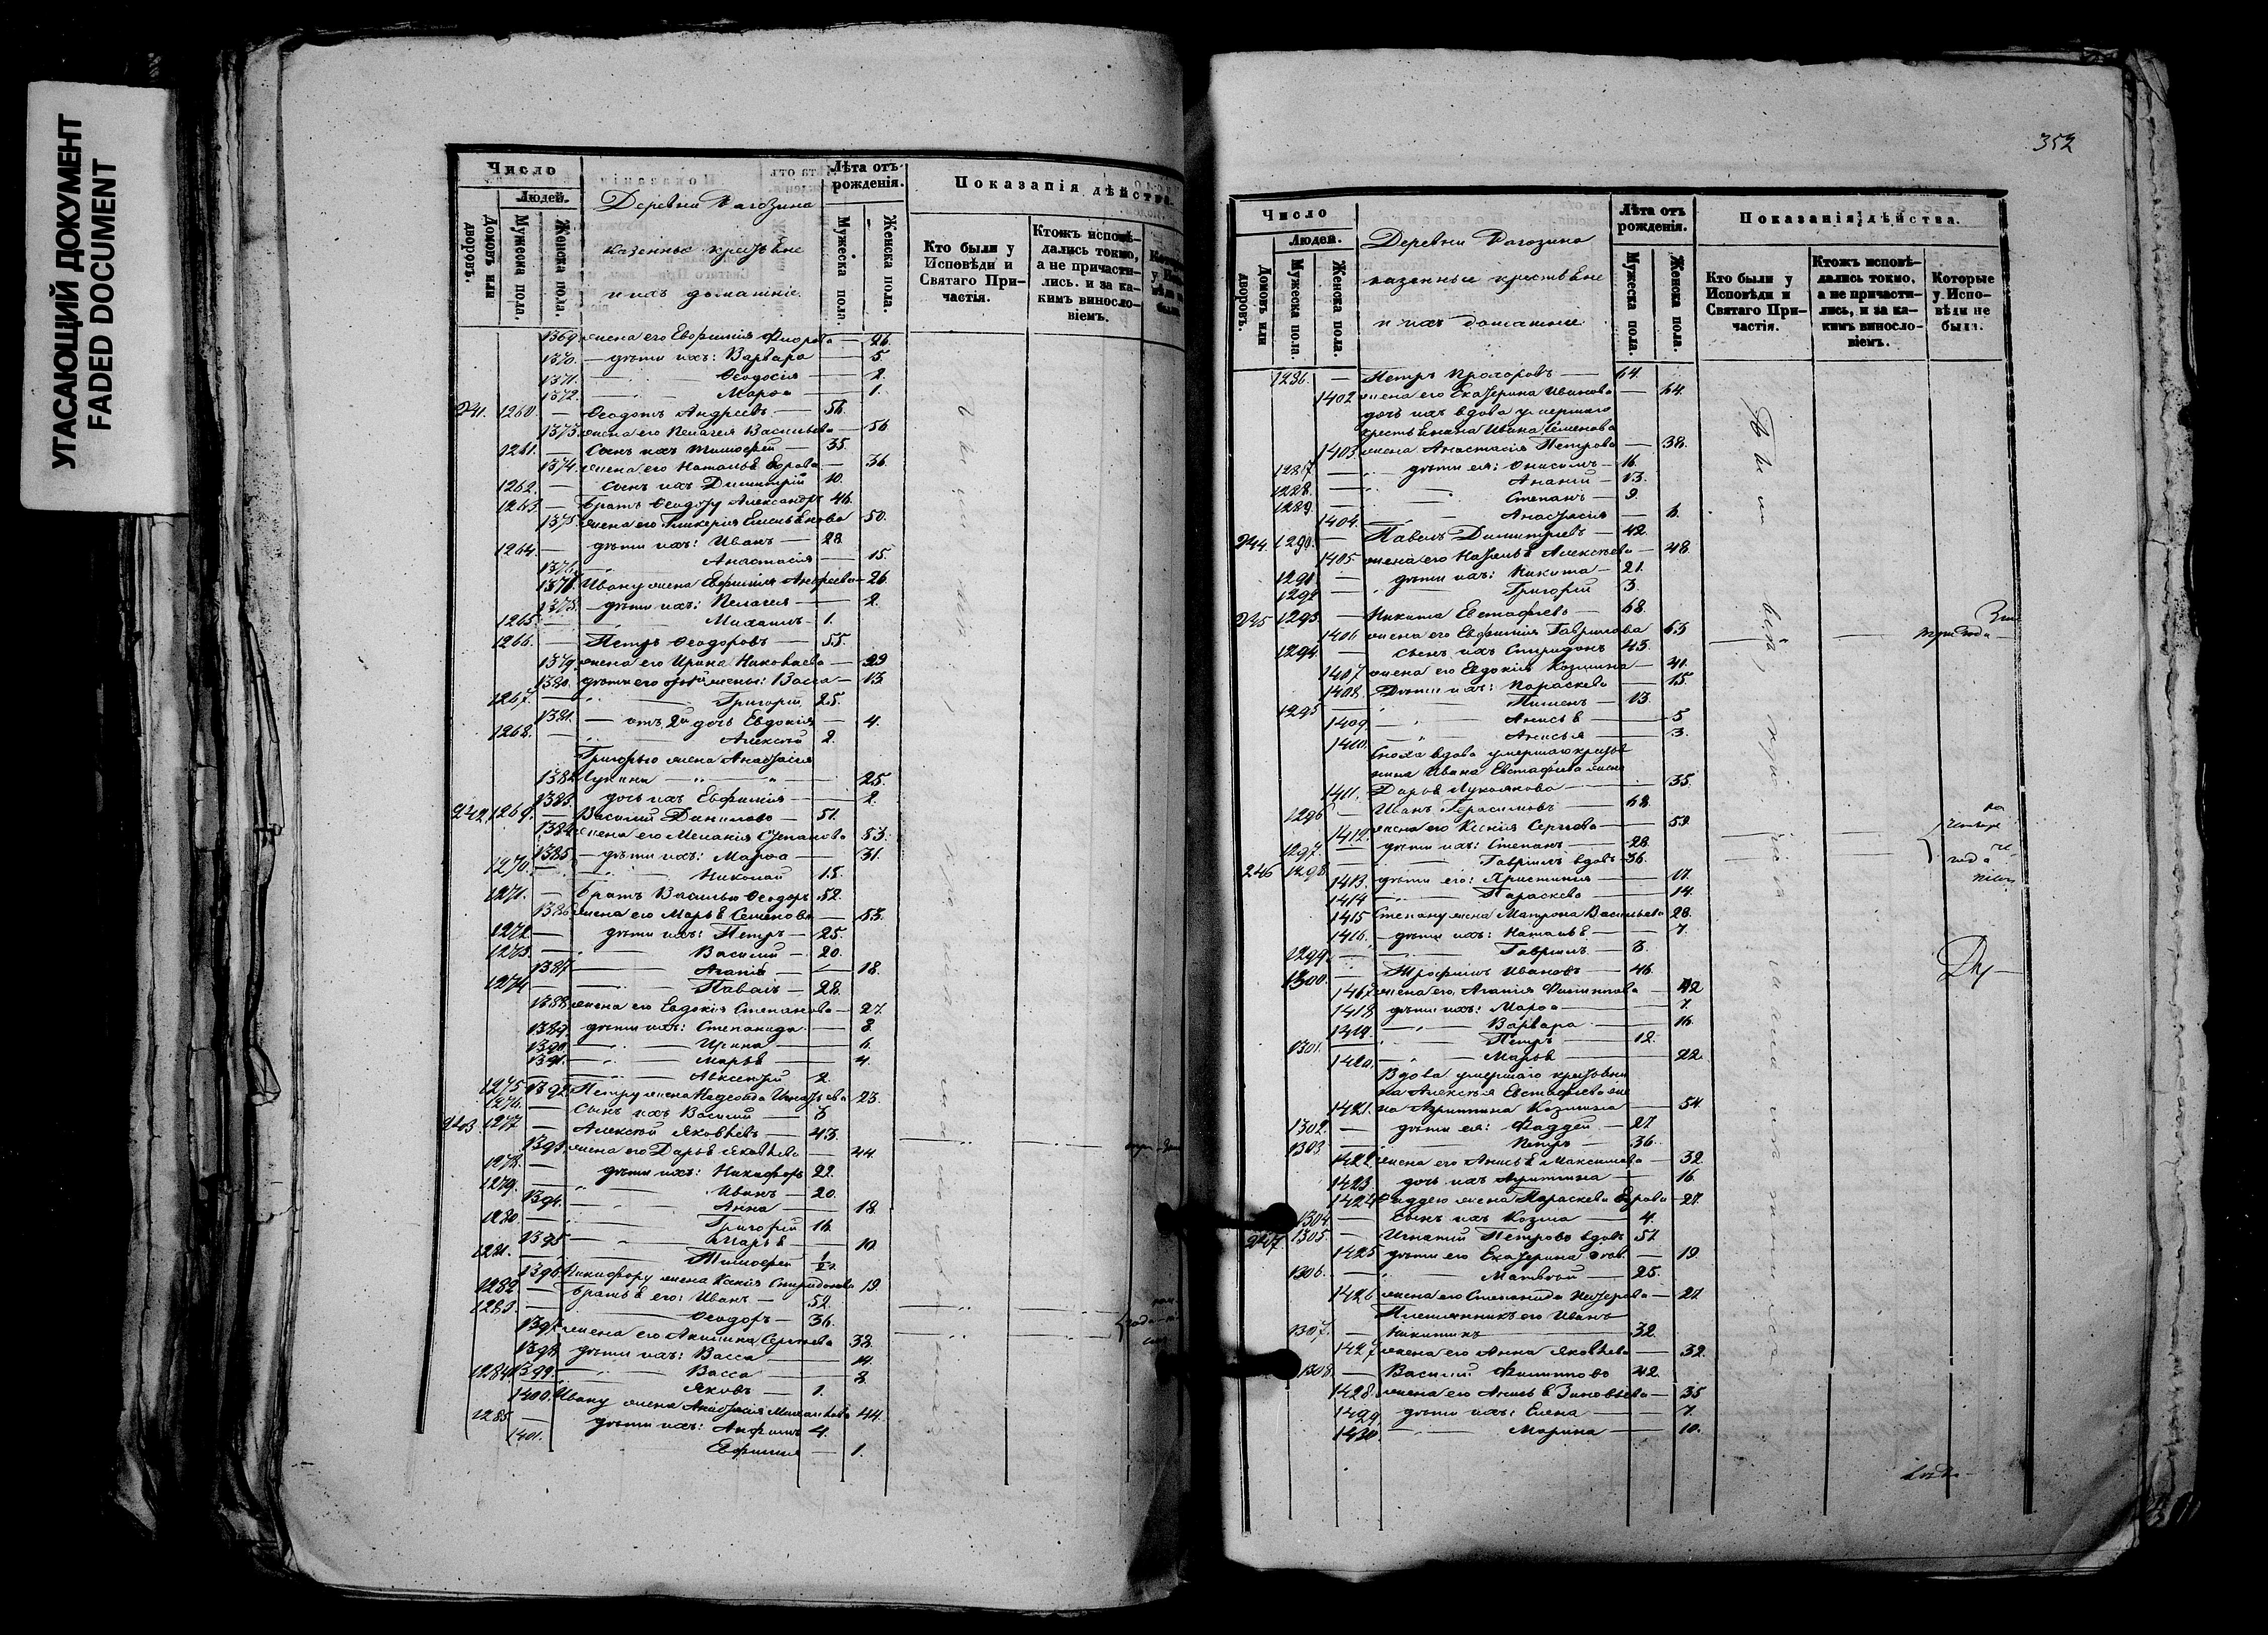 УГАСАЮЩИЙ ДОКУМЕНТ
FADED DOCUMENT
Число
Людей.
Домовъ или дворовъ.
Мужеска пола.
Женска пола.
Деревни Рагозина
казенные крестьяне
и ихъ домашніе.
Лѣта отъ рожденія.
Мужеска пола.
Женска пола.
Показанія дѣйства.
Кто были у Исповѣди и Святаго Причастія.
Ктожъ исповѣдались токмо, а не причастились, и за какимъ винословіемъ.
1369. жена его Евфимія — 26.
1370. — дѣти ихъ: Варвара — 5.
1371. — Ѳеодосія — 2.
1372. — Марѳа — 1.
241. 1260. — Ѳеодотъ Андреевъ — 56.
1373. жена его Пелагея Васильева — 56
1261. — Сынъ ихъ Тимоѳей — 35.
1374. жена его Наталья — 36.
1262. — сынъ ихъ Димитрій 10.
1263. — Братъ Ѳеодору Александръ 46.
1375. жена его Гликерія — 50.
1264. — дѣти ихъ: Иванъ — 28.
1376. — Анастасія — 15.
1377. Ивану жена Евфимія Андреева — 26.
1378. — дѣти ихъ: Пелагея — 2.
1265. — Михаилъ — 1.
1266. — Петръ Ѳеодоровъ — 55.
1379. жена его Ирина Николаева — 29
1380. дѣти его жены: Васса — 13.
1267. — Григорій 25.
1381. — отъ 2й дочь Евдокія — 4.
1268. — Алексѣй 2.
Григорью жена Анастасія
1382. — 25.
1383. дочь ихъ Евфимія — 2.
242. 1269. — Василій Даниловъ — 51.
1384. жена его Меланія Степанова 53.
1385. — дѣти ихъ: Марѳа — 31.
1270. — Николай 15.
1271. — Братъ Василью Ѳеодоръ 52.
1386. жена его Марья Семенова — 53.
1272. — дѣти ихъ: Петръ — 25.
1273. — Василій — 20.
1387. — Агапія — 18.
1274. — Павелъ — 28.
1388. жена его Евдокія Степанова — 27.
1389. дѣти ихъ: Степанида — 8.
1390. — Ирина — 6.
1391. — Марья — 4.
1275. — Авксентій 2.
1392. Петру жена Игнатьева 23.
1276. — сынъ ихъ Василій — 3
243. 1277. — Алексѣй Яковлевъ — 43.
1393. жена его Дарья — 44.
1278. — дѣти ихъ: Никифоръ 22.
1279. — Иванъ — 20.
1394. — Анна — 18.
1280. — Григорій 16.
1395. — Марья — 10.
1281. — Тимоѳей 1/2.
1396. Никифору жена Ксенія Спиридонова 19.
1282. — Братья его: Иванъ — 52.
1283. — Ѳеодоръ — 36.
1397. жена его Акилина Сергѣева 38.
1398. дѣти ихъ: Васса — 14.
1399. — Васса — 8.
1284. — Яковъ — 1.
1400. Ивану жена Анастасія 44.
1285. — дѣти ихъ: Анфимъ 4.
1401. Евфимія — 1.
352
Число
Людей.
Домовъ или дворовъ.
Мужеска пола.
Женска пола.
Деревни Рагозина
казенные крестьяне
и ихъ домашніе
Лѣта отъ рожденія.
Мужеска пола.
Женска пола.
Показанія дѣйства.
Кто были у Исповѣди и Святаго Причастія.
Ктожъ исповѣдались токмо, а не причастились, и за какимъ винословіемъ.
Которые у Исповѣди не были.
1286. — Петръ Прохоровъ — 64.
1402 жена его Екатерина Иванова — 64.
дочь ихъ вдова умершаго
крестьянина Ивана Семенова
1403. жена Анастасія Петрова — 38.
1287. — дѣти ея: Онисимъ — 16.
1288. — Ананій — 13.
1289. — Степанъ — 9.
1404. — Анастасія — 6.
244. 1290. — Павелъ Димитріевъ — 42.
1405 жена его Наталья Алексѣева — 48.
1291. — дѣти ихъ: Никита — 21.
1292 — Григорій 3.
245 1293. — Никита Евстафіевъ — 68.
1406 жена его Евфимія Гаврилова 63
1294. — сынъ ихъ Спиридонъ 43.
1407 жена его Евдокія Козмина — 41.
1408. Дѣти ихъ: Параскева — 15.
1295 — Пименъ — 13.
1409 — Анисья — 5
1410. — Анисья — 3.
Сноха вдова умершаго крестья
нина Ивана Евстафіева жена
1411. Дарья — 35.
1296 — Иванъ Герасимовъ — 68.
1412. жена его Ксенія Сергѣева — 59.
1297. — дѣти ихъ: Степанъ — 28.
246 1298. — Гавріилъ вдовъ 36.
1413. дѣти его: Христинія — 17.
1414 — Параскева — 14.
1415 Степану жена Матрона Васильева 28.
1416. — дѣти ихъ: Наталья — 7.
1299. — Гавріилъ — 3.
1300. — Трофимъ Ивановъ — 46.
1417 жена его Агапія Филиппова — 42
1418 дѣти ихъ: Марѳа — 7.
1419. — Варвара — 16.
1301. — Петръ — 12.
1420. — Марья — 22.
Вдова умершаго крестьяни
на Алексѣя Евстафіева же
1421. на Агрипина Козмина — 54.
1302. — дѣти ея: Фаддей — 27
1303 — Петръ — 36.
1422 жена его Анисья Максимова — 32.
1423. дочь ихъ Агрипина — 16.
1424 Фаддею жена Параскева — 27.
1304. — сынъ ихъ Козма — 4.
247. 1305 — Игнатій Петровъ вдовъ 57
1425 дѣти его Екатерина — 19.
1306. — Матвей — 25.
1426 жена его Степанида — 27
Племянникъ его Иванъ
1307. — Никитинъ — 32.
1427 жена его Анна Яковлева — 32.
1308. — Василій Филипповъ 42.
1428. жена его Анисья Зиновьева — 35
1429. дѣти ихъ: Елена — 7.
1430. — Марина — 10.